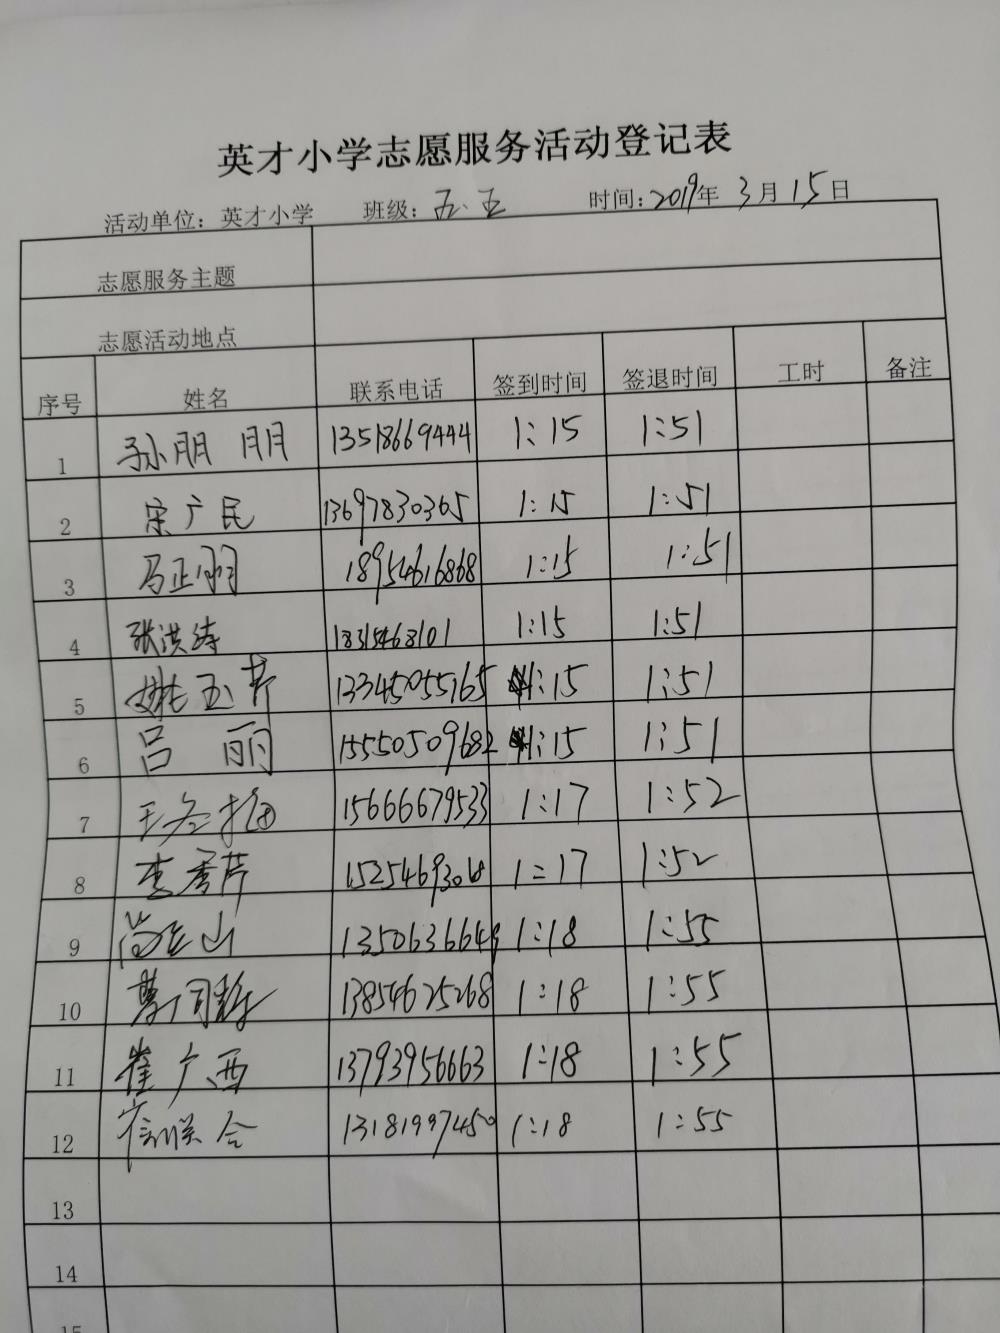 英才小学志愿服务活动登记表
活动单位：英才小学 班级：五.五 时间：2019年3月15日
志愿服务主题
志愿活动地点
序号 姓名 联系电话 签到时间 签退时间 工时 备注
1 孙朋朋 13518669444 1:15 1:51
2 宋广民 13697830365 1:15 1:51
3 马正 18954616868 1:15 1:51
4 张洪涛 18315468101 1:15 1:51
5 姚玉芹 13345055165 1:15 1:51
6 吕丽 15550509682 1:15 1:51
7 15666679533 1:17 1:52
8 李秀芹 1:17 1:52
9 山 13506366649 1:18 1:55
10 13854625268 1:18 1:55
11 崔广西 13793956663 1:18 1:55
12 联合 13181997450 1:18 1:55
13
14
15